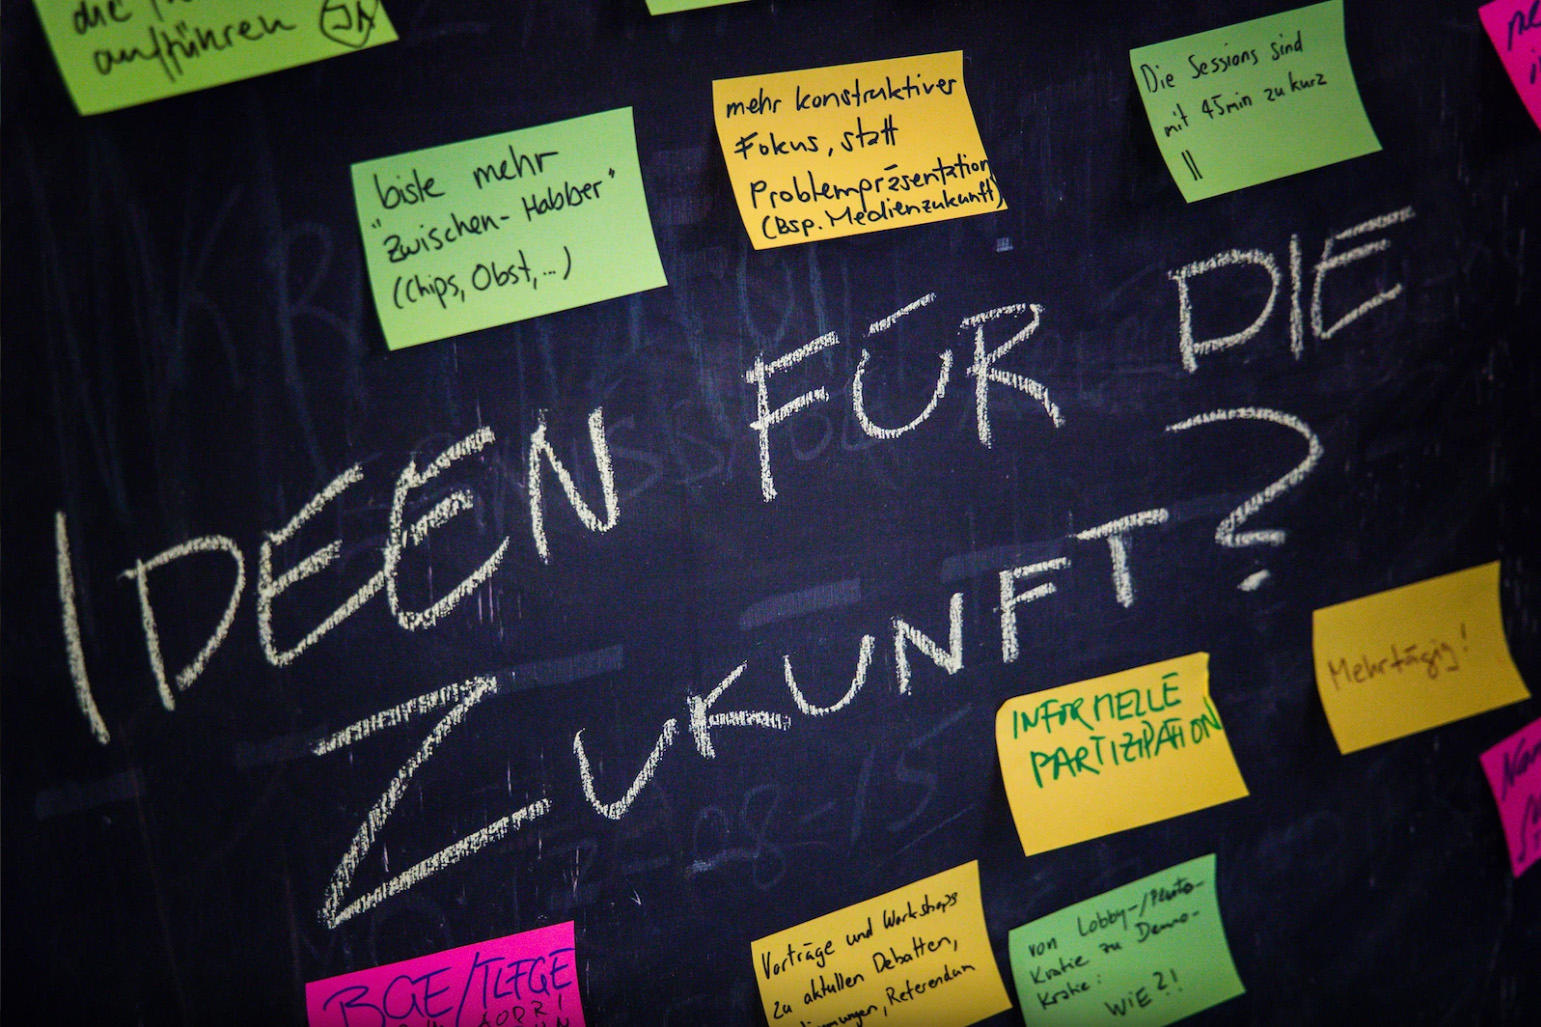 die
aufführen JA
biste mehr
"Zwischen-Habber"
(Chips, Obst,...)
mehr konstruktiver
Fokus, statt
Problempräsentation
(Bsp. Medienzukunft)
Die Sessions sind
mit 45min zu kurz
||
IDEEN FÜR DIE
ZUKUNFT?
INFORMELLE
PARTIZIPATION
Mehrtägig!
BGE/TLFGE
Vorträge und Workshops
zu aktullen Debatten,
Referendum
von Lobby-/Pluto-
kratie zu Demo-
kratie:
WIE?!